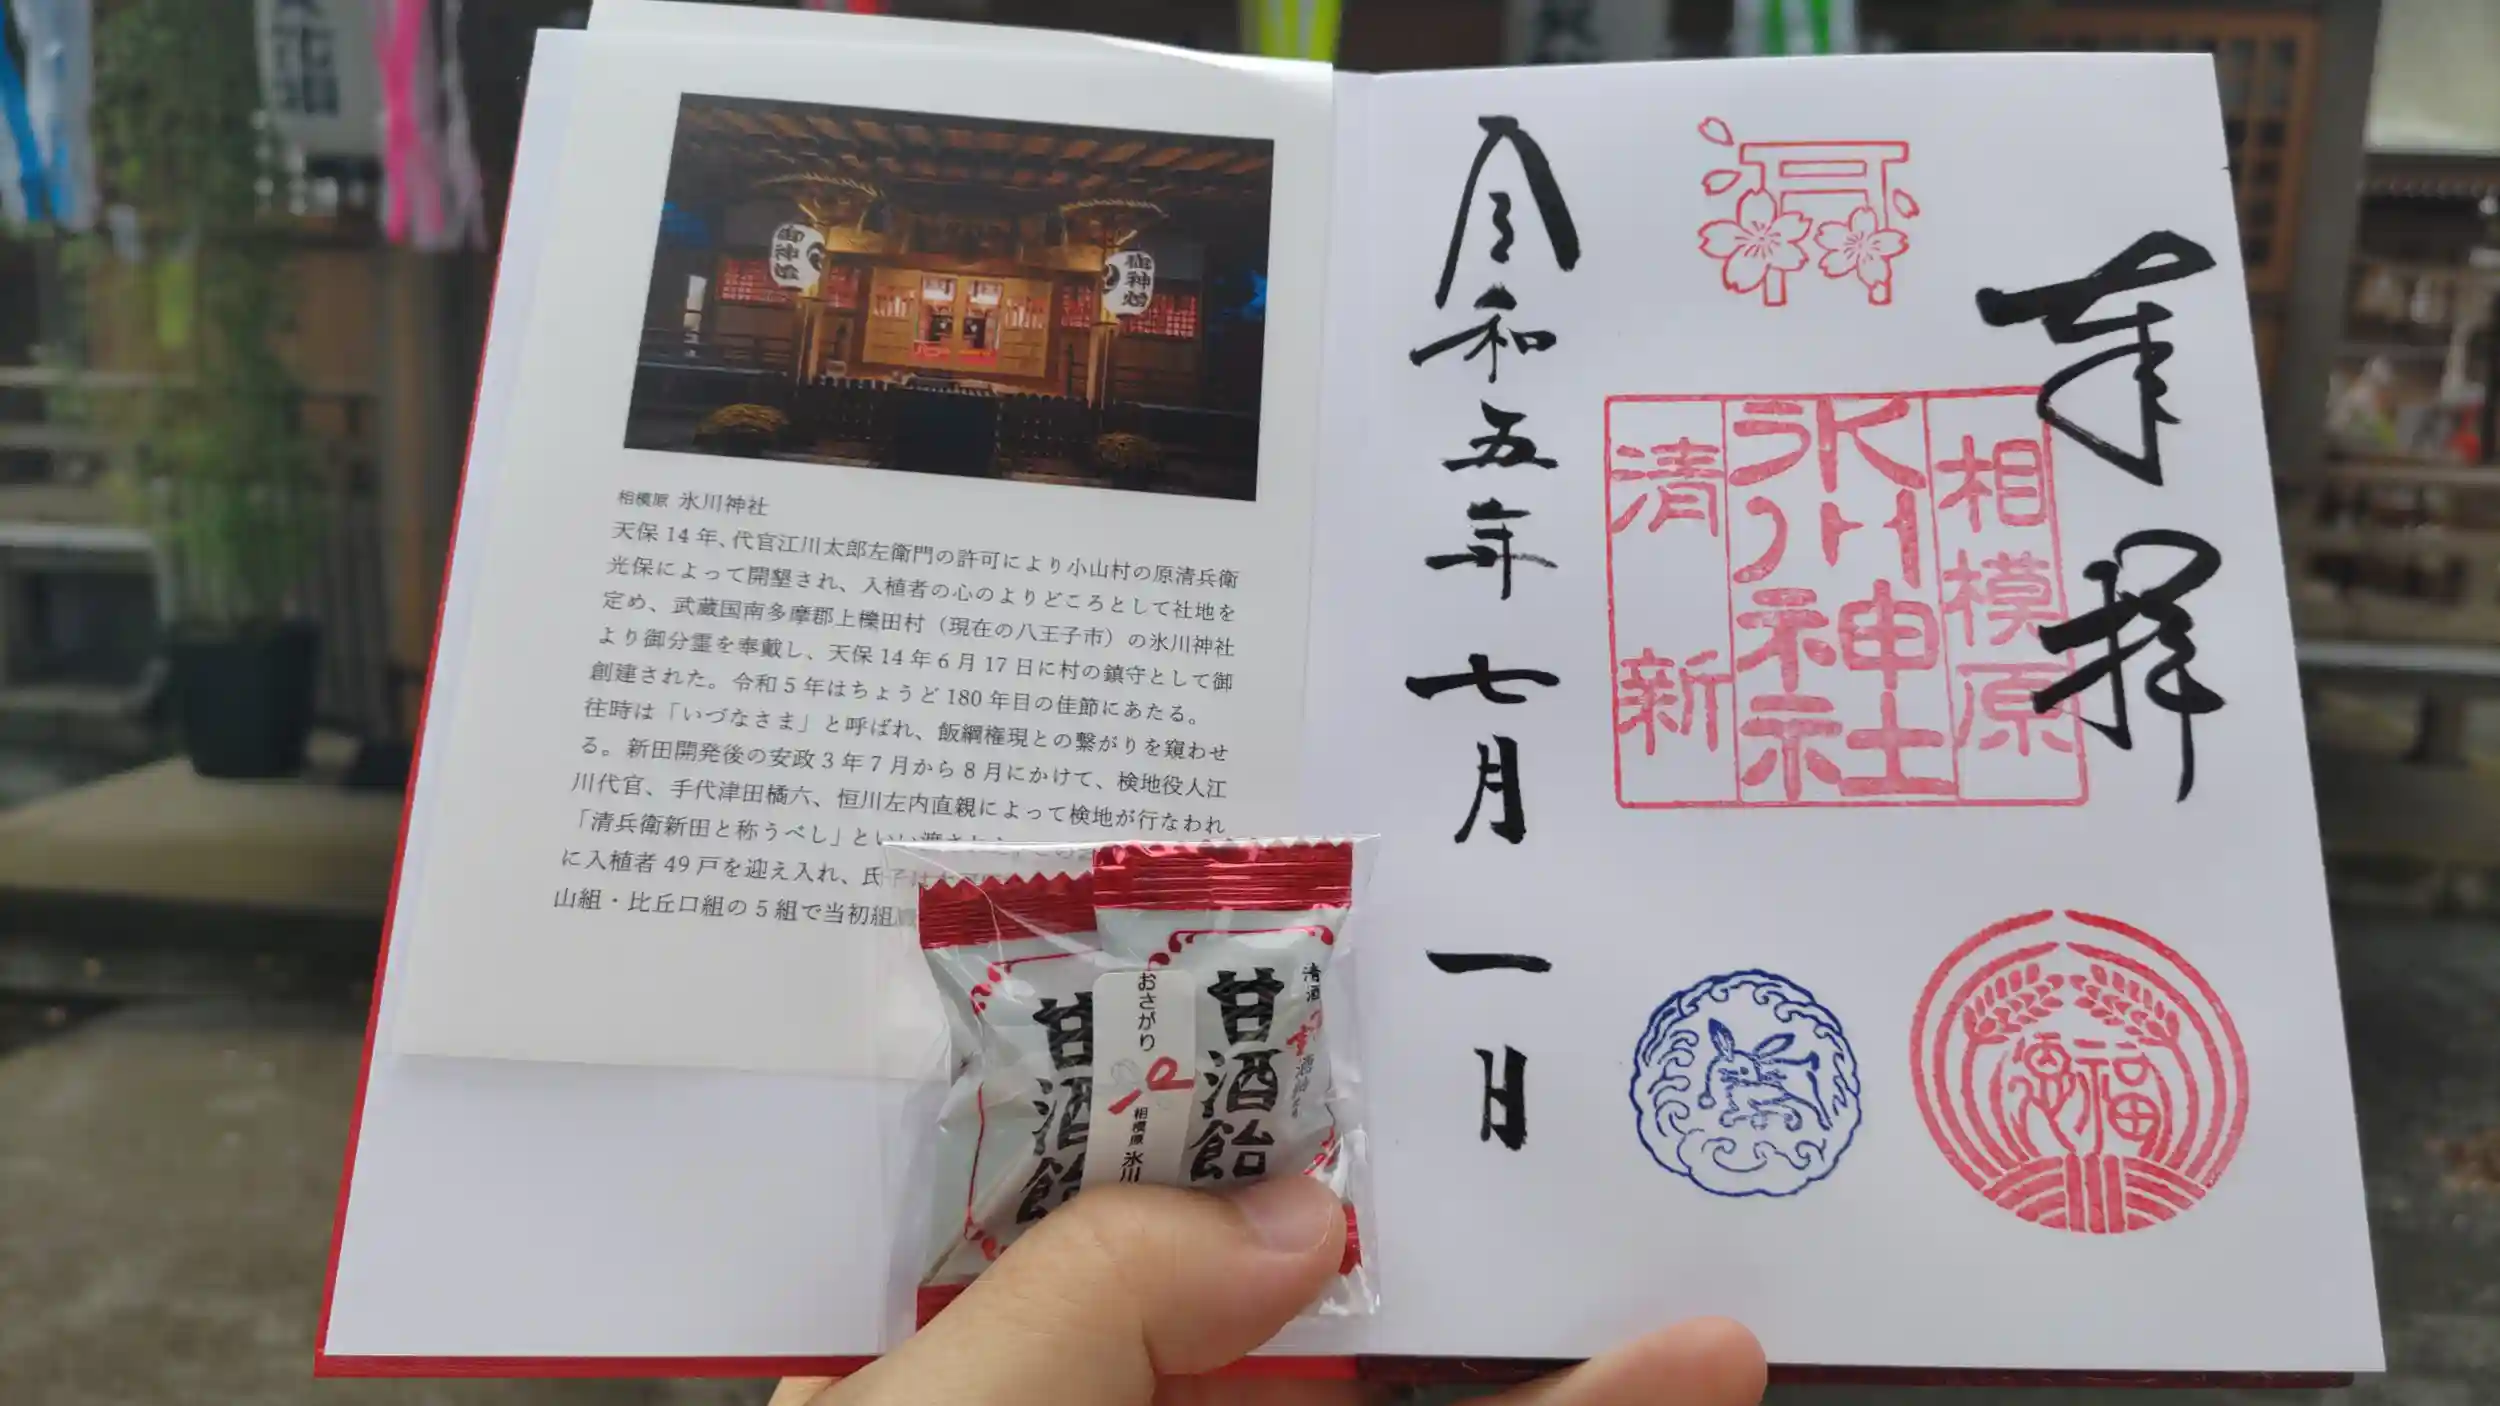 御神燈
御神燈
相模原 氷川神社
天保14年、代官江川太郎左衛門の許可により小山村の原清兵衛
光保によって開墾され、入植者の心のよりどころとして社地を
定め、武蔵国南多摩郡上櫟田村（現在の八王子市）の氷川神社
より御分霊を奉戴し、天保14年6月17日に村の鎮守として御
創建された。令和5年はちょうど180年目の佳節にあたる。
往時は「いづなさま」と呼ばれ、飯綱権現との繋がりを窺わせ
る。新田開発後の安政3年7月から8月にかけて、検地役人江
川代官、手代津田橘六、恒川左内直親によって検地が行なわれ
「清兵衛新田と称うべし」といい渡された
に入植者49戸を迎え入れ、氏子は
山組・比丘口組の5組で当初組
奉拝
相模原
氷川神社
清新
令和五年七月一日
福
恩
清酒
甘酒飴
おさがり
相模原 氷川
甘酒飴